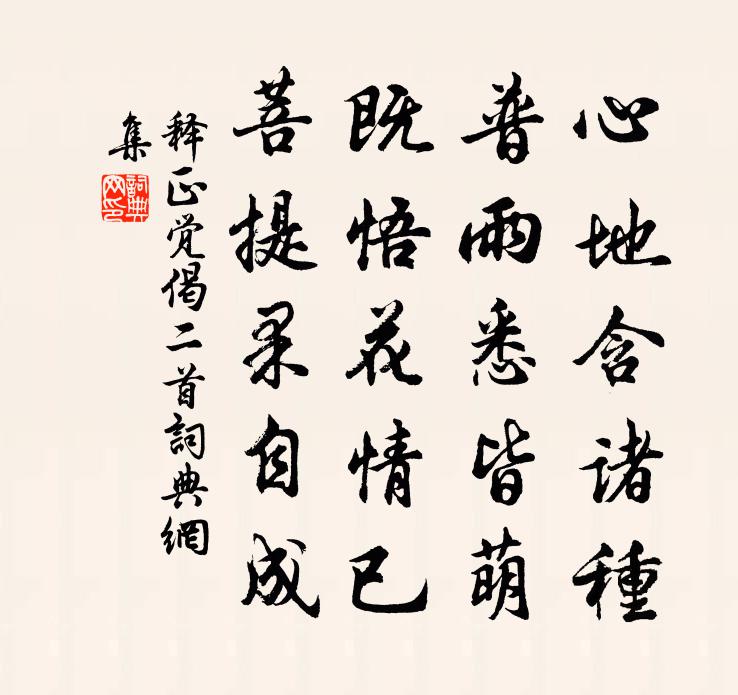 心地含諸種
普雨悉皆萌
既悟花情已
菩提果自成
释正觉偈二首詞典網
集
詞典網印